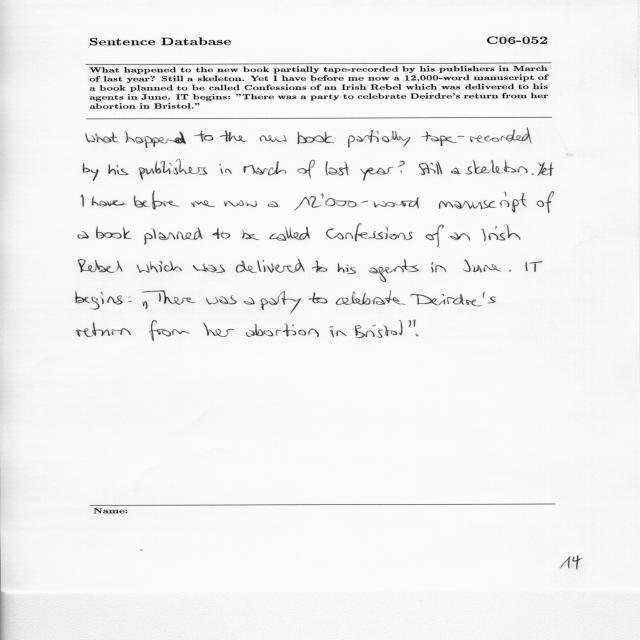 Sentence Database C06-052
What happened to the new book partially tape-recorded by his publishers in March
of last year? Still a skeleton. Yet I have before me now a 12,000-word manuscript of
a book planned to be called Confessions of an Irish Rebel which was delivered to his
agents in June. IT begins: "There was a party to celebrate Deirdre's return from her
abortion in Bristol."
What happened to the new book partially tape-recorded
by his publishers in March of last year? Still a skeleton. Yet
I have before me now a 12'000-word manuscript of
a book planned to be called Confessions of an Irish
Rebel which was delivered to his agents in June. IT
begins: „There was a party to celebrate Deirdre's
return from her abortion in Bristol".
Name:
14